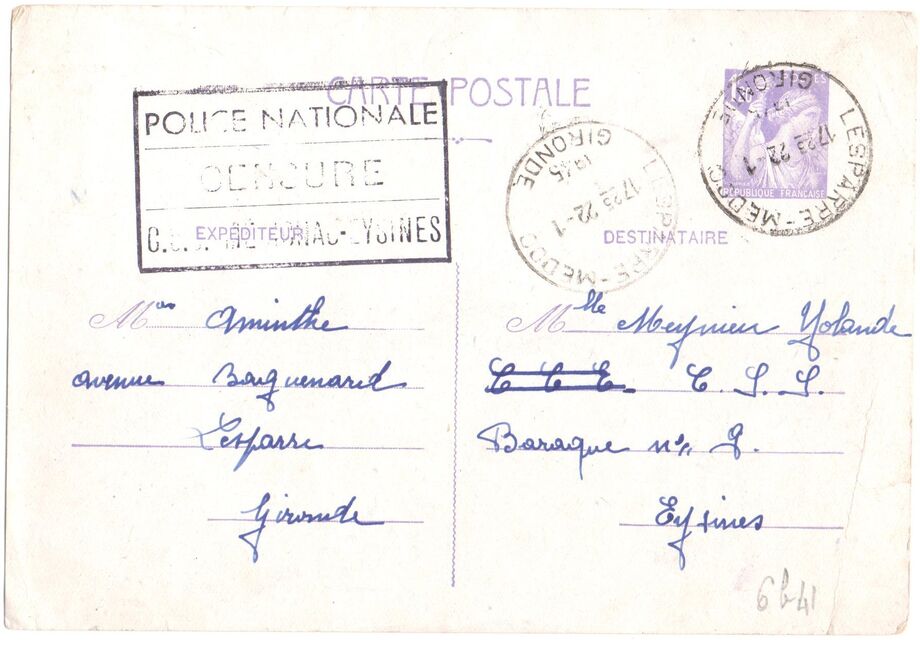 CARTE POSTALE
POLICE NATIONALE
CENSURE
C.S.S. DE MÉRIGNAC-EYSINES
EXPÉDITEUR
Mme Aminthe
avenue
Lesparre
Gironde
LESPARRE-MEDOC
17 25 22-1
1945
GIRONDE
LESPARRE-MEDOC
17 25 22-1
1945
GIRONDE
RÉPUBLIQUE FRANÇAISE
DESTINATAIRE
Mlle Meynieu Yolande
C C E. C. S. S.
Baraque n° 9.
Eysines
6 b 41